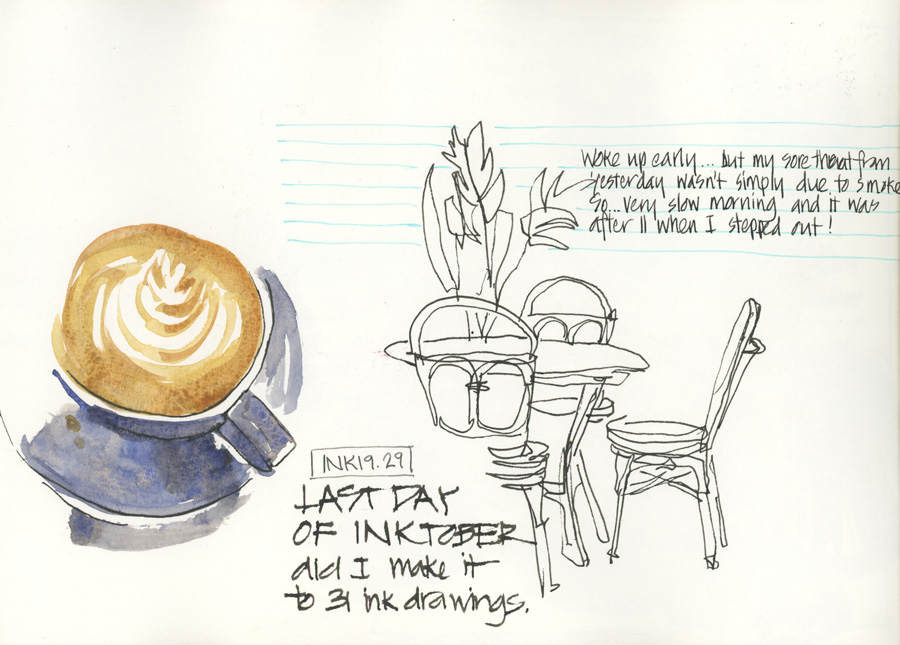 Woke up early... but my sore throat from
yesterday wasn't simply due to smoke
So...very slow morning and it was
after 11 when I stepped out!
INK19.29
LAST DAY
OF INKTOBER
did I make it
to 31 ink drawings.